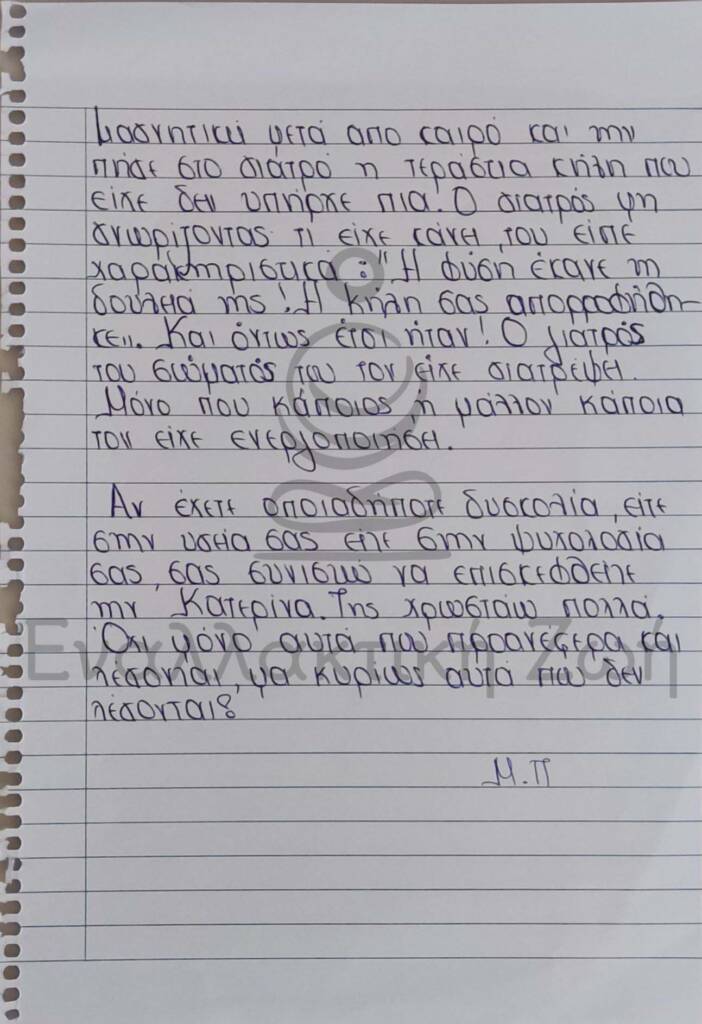 μαγνητική μετά απο καιρό και την
πήγε στο γιατρό η τεράστια κήλη που
είχε δεν υπήρχε πια. Ο γιατρός μη
γνωρίζοντας τι είχε κάνει, του είπε
χαρακτηριστικά : "Η φύση έκανε τη
δουλειά της! Η κήλη σας απορροφήθη-
κε". Και όντως έτσι ήταν! Ο γιατρός
του σώματός του τον είχε γιατρέψει.
Μόνο που κάποιος ή μάλλον κάποια
τον είχε ενεργοποιήσει.
Αν έχετε οποιαδήποτε δυσκολία, είτε
στην υγεία σας είτε στην ψυχολογία
σας, σας συνιστώ να επισκεφθείτε
την Κατερίνα. Της χρωστάω πολλά.
Όχι μόνο αυτά που προανέφερα και
λέγονται, μα κυρίως αυτά που δεν
λέγονται!
Μ.Π
Εναλλακτική Ζωή